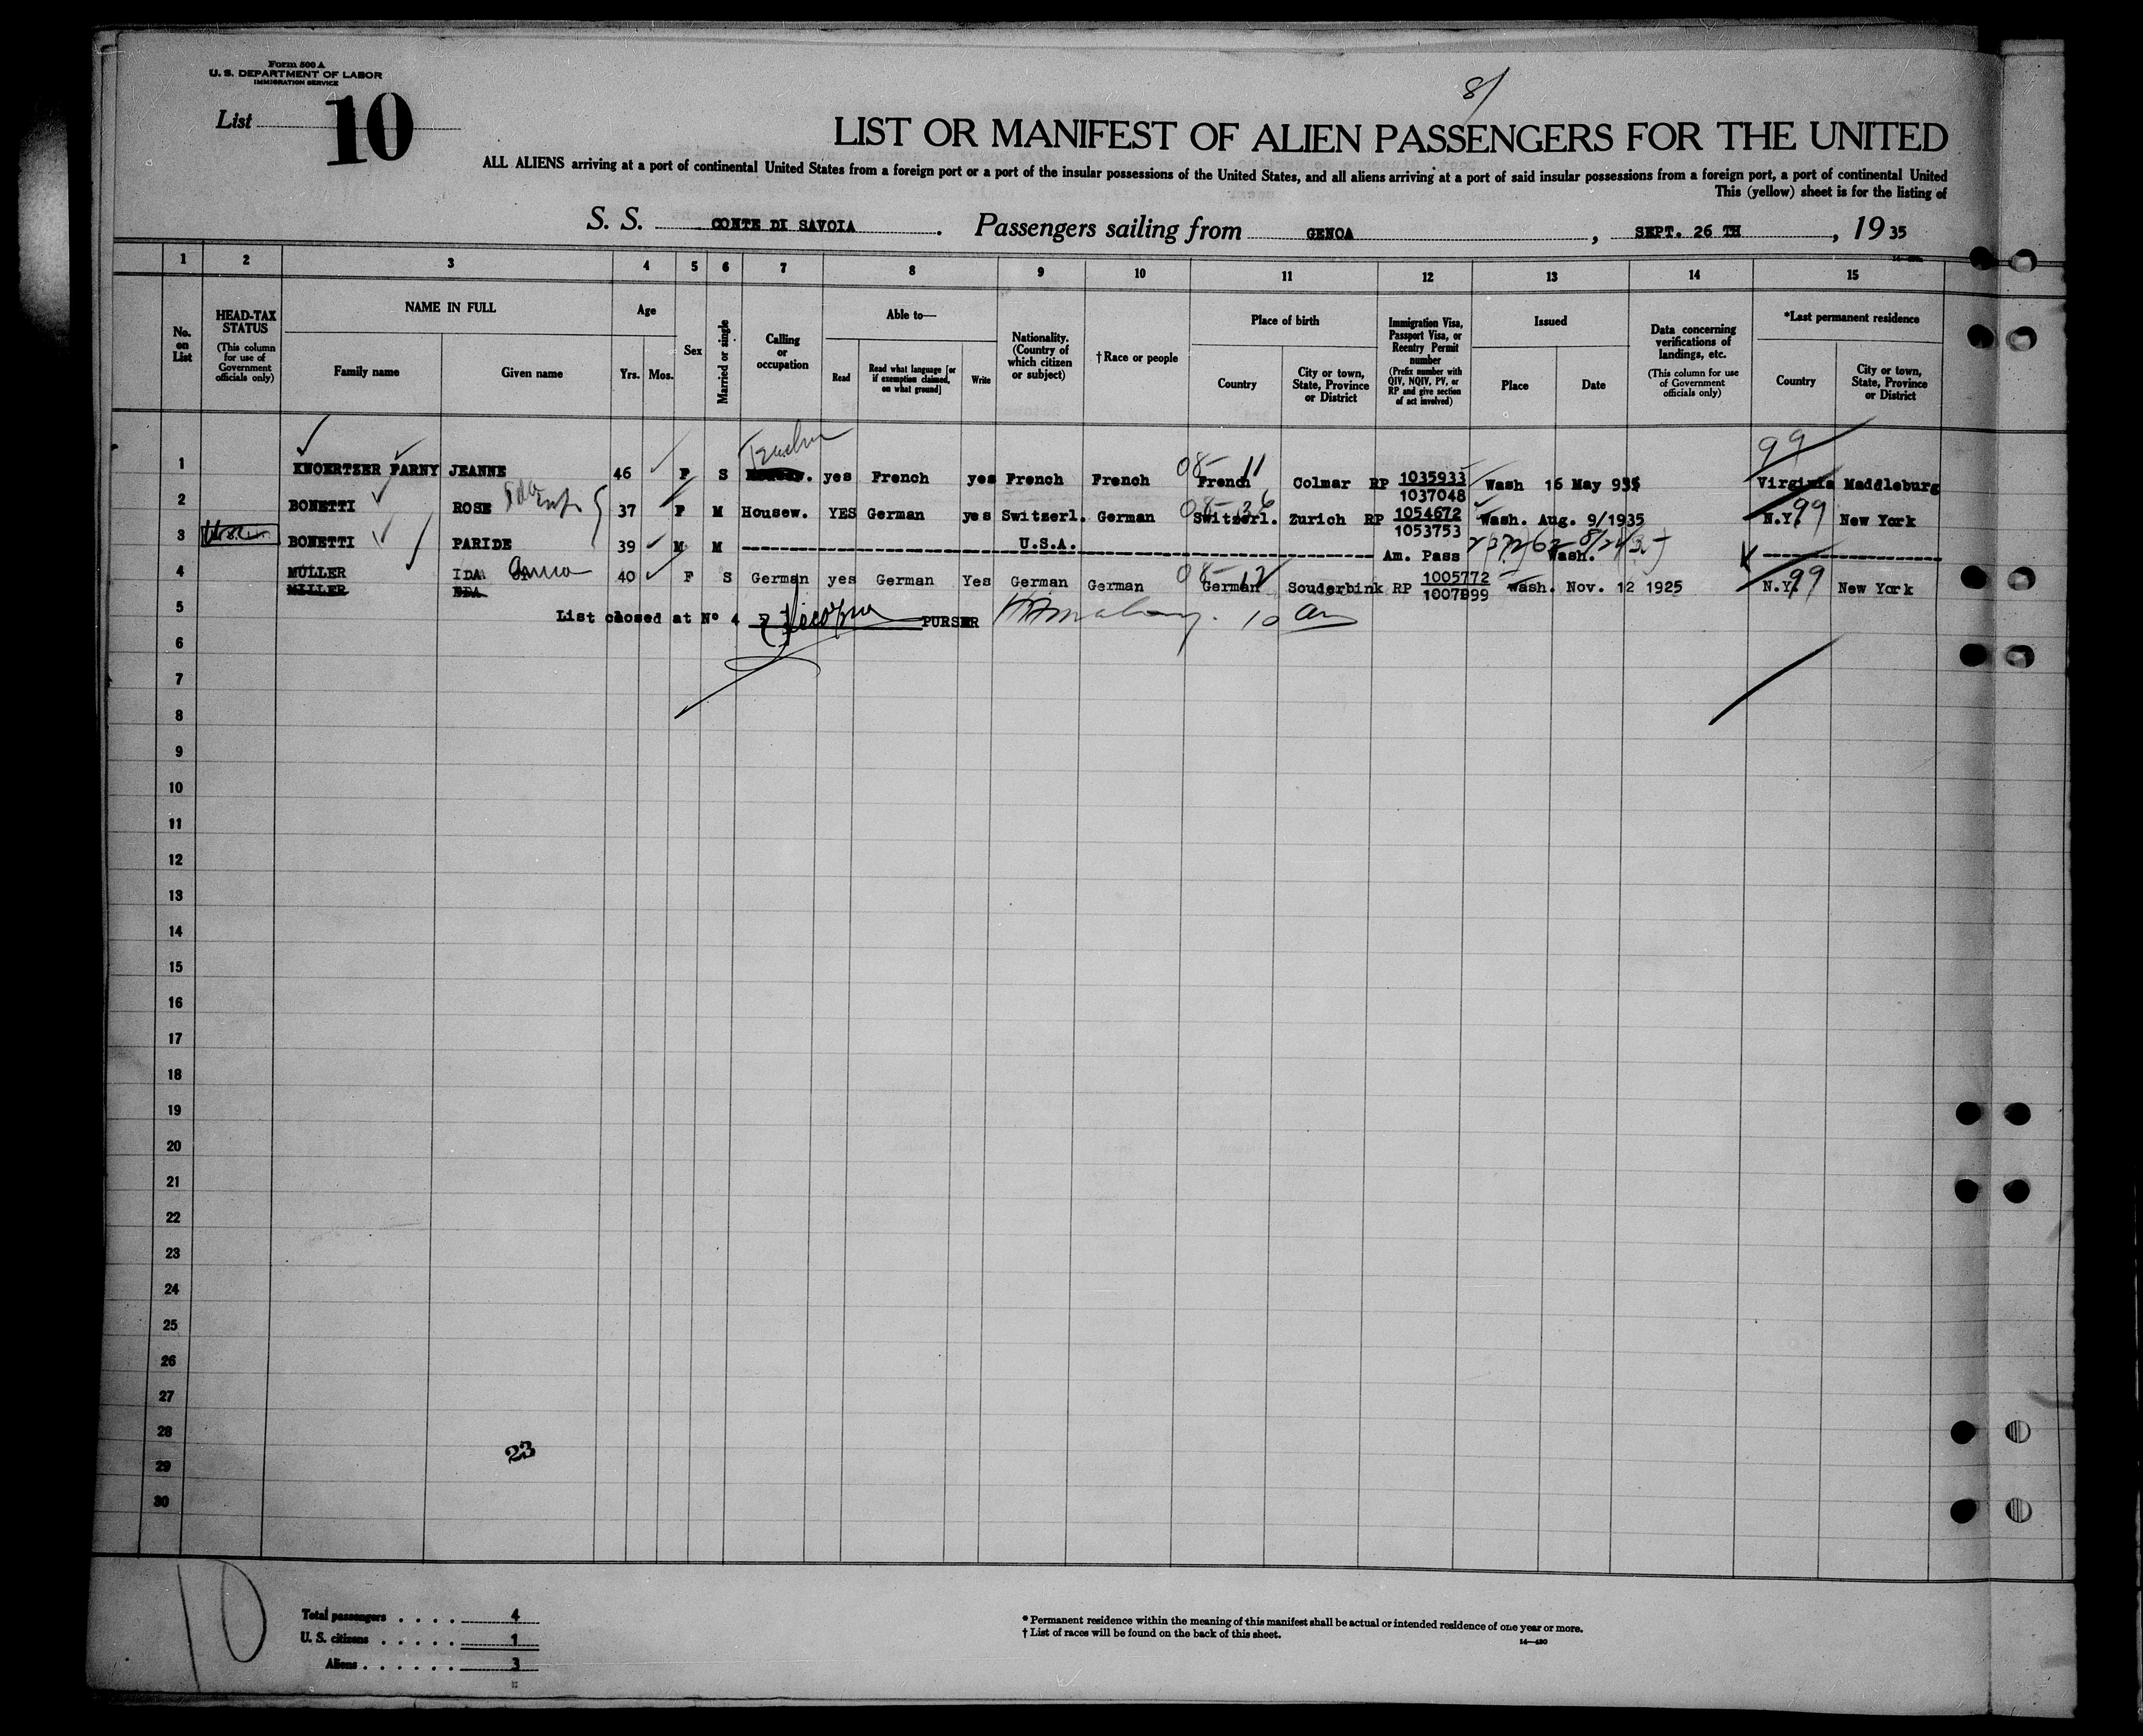 Form 500 A
U. S. DEPARTMENT OF LABOR
IMMIGRATION SERVICE
List 10
8/
LIST OR MANIFEST OF ALIEN PASSENGERS FOR THE UNITED
ALL ALIENS arriving at a port of continental United States from a foreign port or a port of the insular possessions of the United States, and all aliens arriving at a port of said insular possessions from a foreign port, a port of continental United
This (yellow) sheet is for the listing of
S. S. CONTE DI SAVOIA. Passengers sailing from GENOA, SEPT. 26 TH, 1935
1 2 3 4 5 6 7 8 9 10 11 12 13 14 15
No. on List
HEAD-TAX STATUS (This column for use of Government officials only)
NAME IN FULL
Family name Given name
Age
Yrs. Mos.
Sex
Married or single
Calling or occupation
Able to—
Read Read what language [or if exemption claimed, on what ground] Write
Nationality. (Country of which citizen or subject)
† Race or people
Place of birth
Country City or town, State, Province or District
Immigration Visa, Passport Visa, or Reentry Permit number (Prefix number with QIV, NQIV, PV, or RP and give section of act involved)
Issued
Place Date
Data concerning verifications of landings, etc. (This column for use of Government officials only)
*Last permanent residence
Country City or town, State, Province or District
1 KNOERTZER FARNY JEANNE 46 F S yes French yes French French 08-11 French Colmar RP 1035933 1037048 Wash 16 May 935 99 Virginia Maddleburg
2 BONETTI ROSE 37 F M Housew. YES German yes Switzerl. German 08-36 Switzerl. Zurich RP 1054672 1053753 Wash. Aug. 9/1935 N.Y. 99 New York
3 BONETTI PARIDE 39 M M U.S.A. Am. Pass Wash.
4 MULLER IDA Anna 40 F S German yes German Yes German German 08-12 German Souderbink RP 1005772 Wash. Nov. 12 1925 N.Y. 99 New York
MILLER IDA
5 List closed at Nº 4 PURSER 10
6
7
8
9
10
11
12
13
14
15
16
17
18
19
20
21
22
23
24
25
26
27
28
29
30
23
10
Total passengers . . . . 4
U. S. citizens . . . . . 1
Aliens . . . . . . 3
* Permanent residence within the meaning of this manifest shall be actual or intended residence of one year or more.
† List of races will be found on the back of this sheet.
14—430